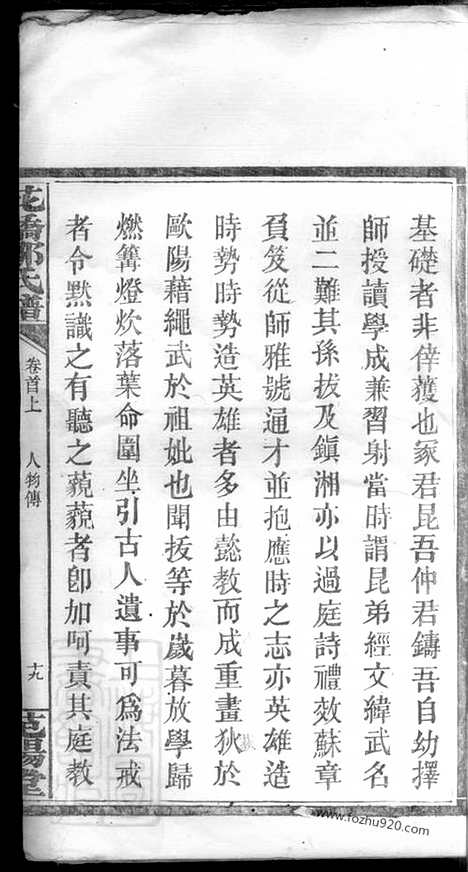 基礎者非倖獲也冢君昆吾仲君鑄吾自幼擇
師授讀學成兼習射當時謂昆弟經文緯武名
並二難其孫拔及鎮湘亦以過庭詩禮效蘇章
負笈從師雅號通才並抱應時之志亦英雄造
時勢時勢造英雄者多由懿教而成重畫狄於
歐陽藉繩武於祖妣也聞拔等於歲暮放學歸
燃篝燈炊落葉命圍坐引古人遺事可為法戒
者令默識之有聽之藐藐者卽加呵責其庭教
花橋鄒氏譜
卷首上
人物傳
十九
范陽堂
www.fozhu920.com